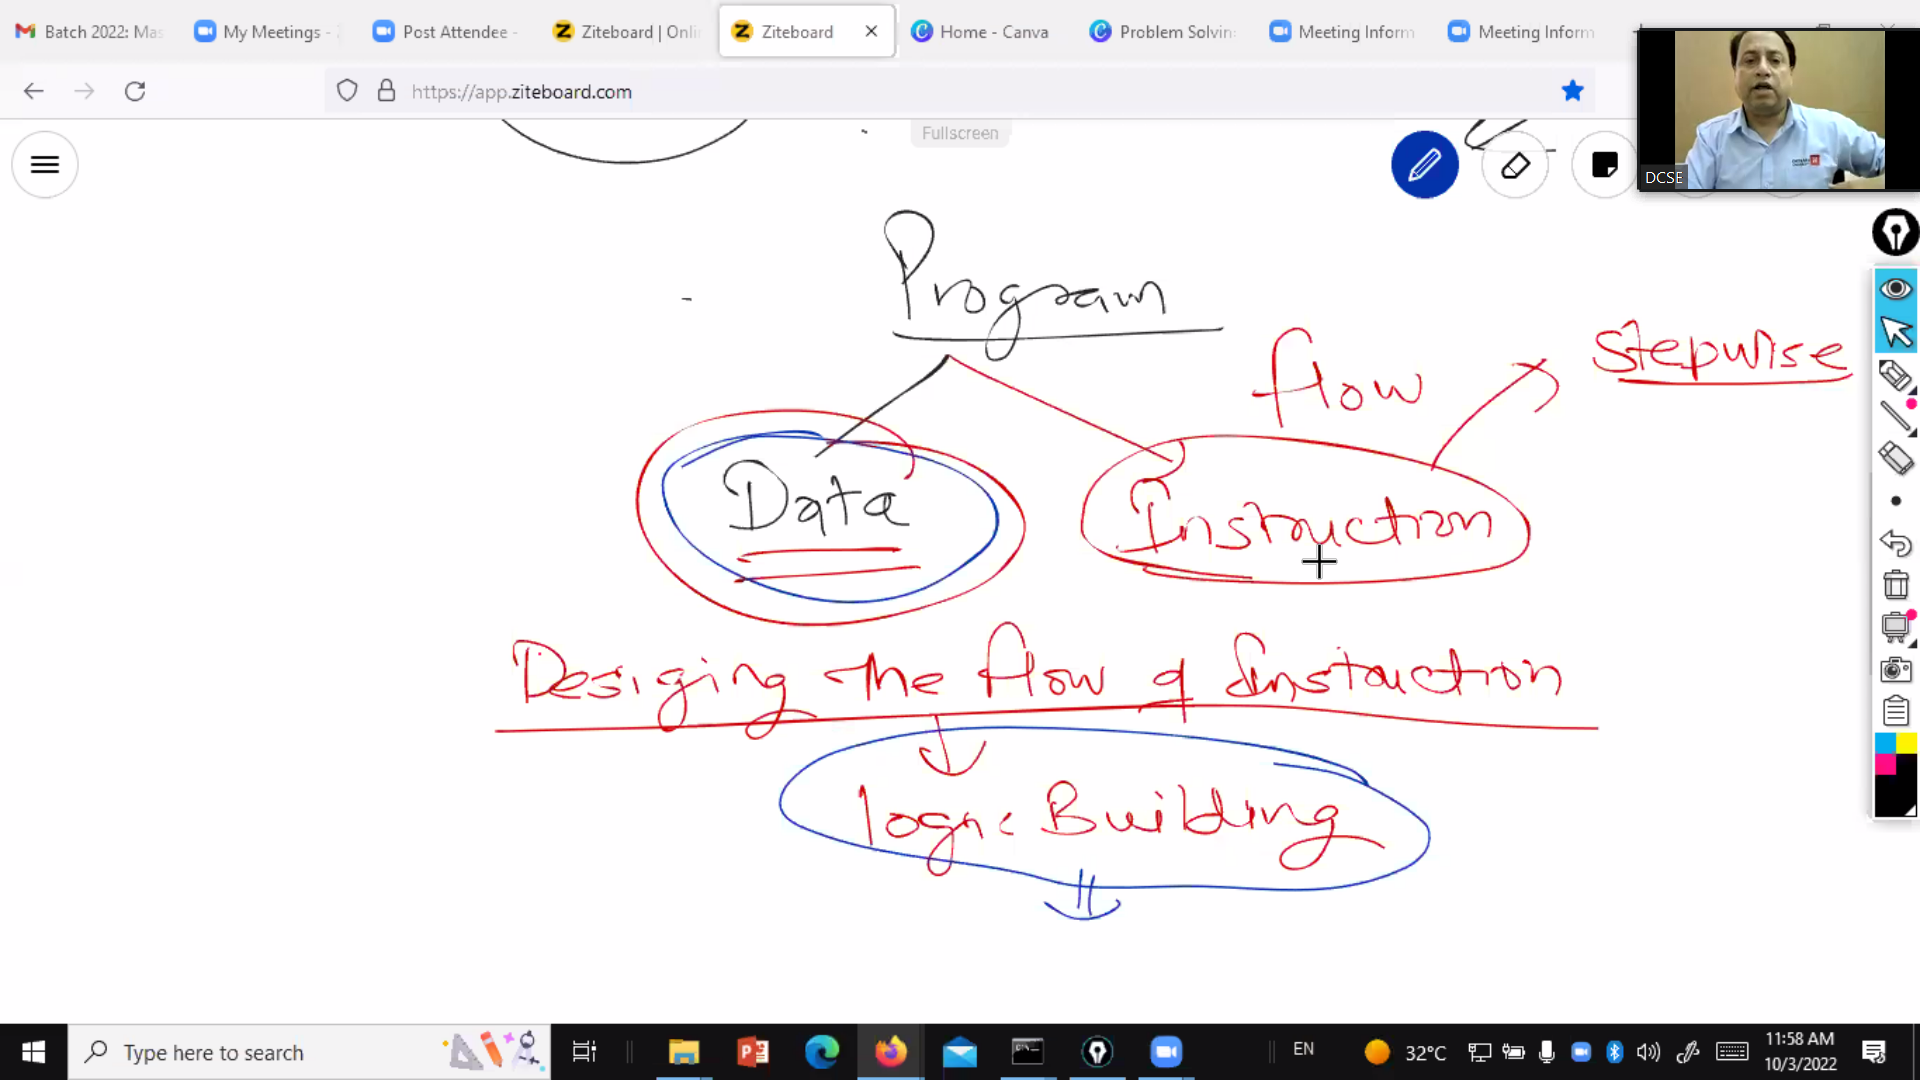 Batch 2022: Mas
My Meetings -
Post Attendee -
Ziteboard | Onli
Ziteboard
Home - Canva
Problem Solvin
Meeting Inform
Meeting Inform
https://app.ziteboard.com
Fullscreen
DCSE
Program
flow
Stepwise
Data
Instruction
Desiging the flow of Instruction
logic Building
Type here to search
EN
32°C
11:58 AM
10/3/2022